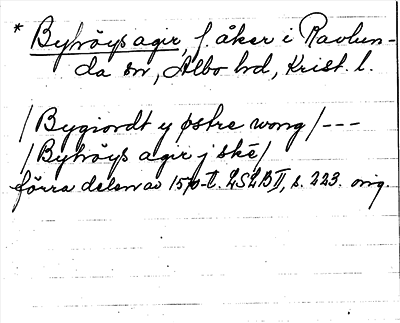 * Byhröys agir, f. åker i Ravlun-
da sn, Albo hd, Krist. l.
/Bygiordt y østre wong/---
/Byhröys agir j ske/
förra delen av 1570-t. LSLB II, s. 223. orig.